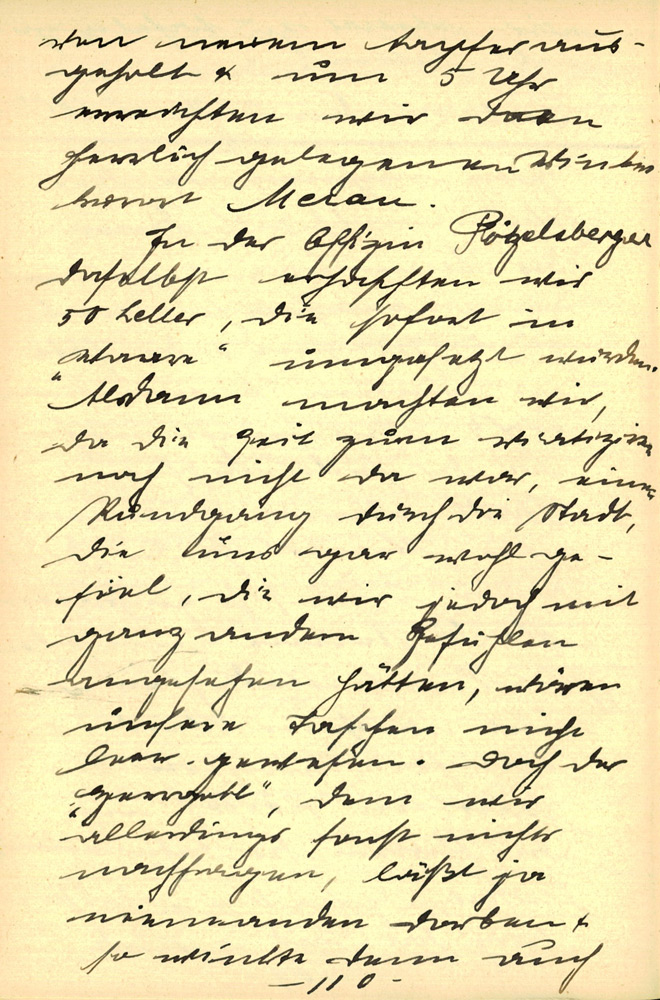 von neuem tapfer aus-
geholt & um 5 Uhr
erreichten wir den
herrlich gelegenen Winter
kurort Meran.
In der Offizin Pötzelsberger
daselbst erhaschten wir
50 Heller, die sofort in
"Waare" umgesetzt wurden.
Alsdann machten wir,
da die Zeit zum
noch nicht da war, einen
Rundgang durch die Stadt,
die uns gar wohl ge-
fiel, die wir jedoch mit
ganz andern Gefühlen
angesehen hätten, wären
unsere Taschen nicht
leer gewesen. Doch der
"Herrgott", dem wir
allerdings sonst nichts
nachfragen, läßt ja
niemanden darben &
so winkte denn auch
- 110 -